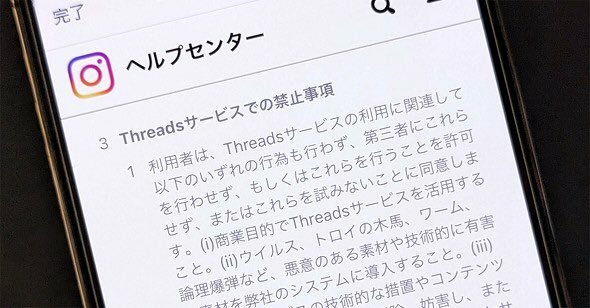 完了
ヘルプセンター
3 Threadsサービスでの禁止事項
1 利用者は、Threadsサービスの利用に関連して
以下のいずれの行為も行わず、第三者にこれら
を行わせず、もしくはこれらを行うことを許可
せず、またはこれらを試みないことに同意しま
す。(i)商業目的でThreadsサービスを活用する
こと。(ii)ウイルス、トロイの木馬、ワーム、
論理爆弾など、悪意のある素材や技術的に有害
な素材を弊社のシステムに導入すること。(iii)
の技術的な措置やコンテンツ
妨害し、また